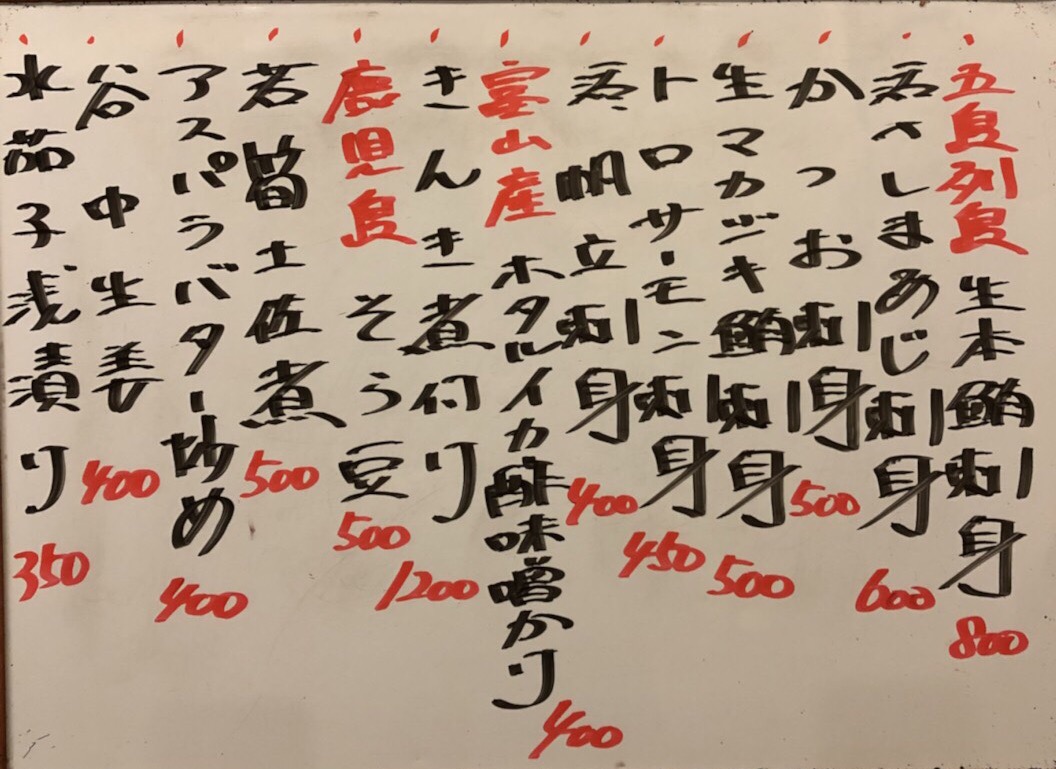 五島列島 生本鮪刺身 800
しまあじ刺身 600
かつお刺身 500
生マカジキ鮪刺身 500
トロサーモン刺身 450
帆立刺身 400
富山産 ホタルイカ酢味噌かり 400
きんき煮付り 1200
鹿児島 そら豆 500
若筍土佐煮 500
アスパラバター炒め 400
谷中生姜 400
水茄子浅漬り 350